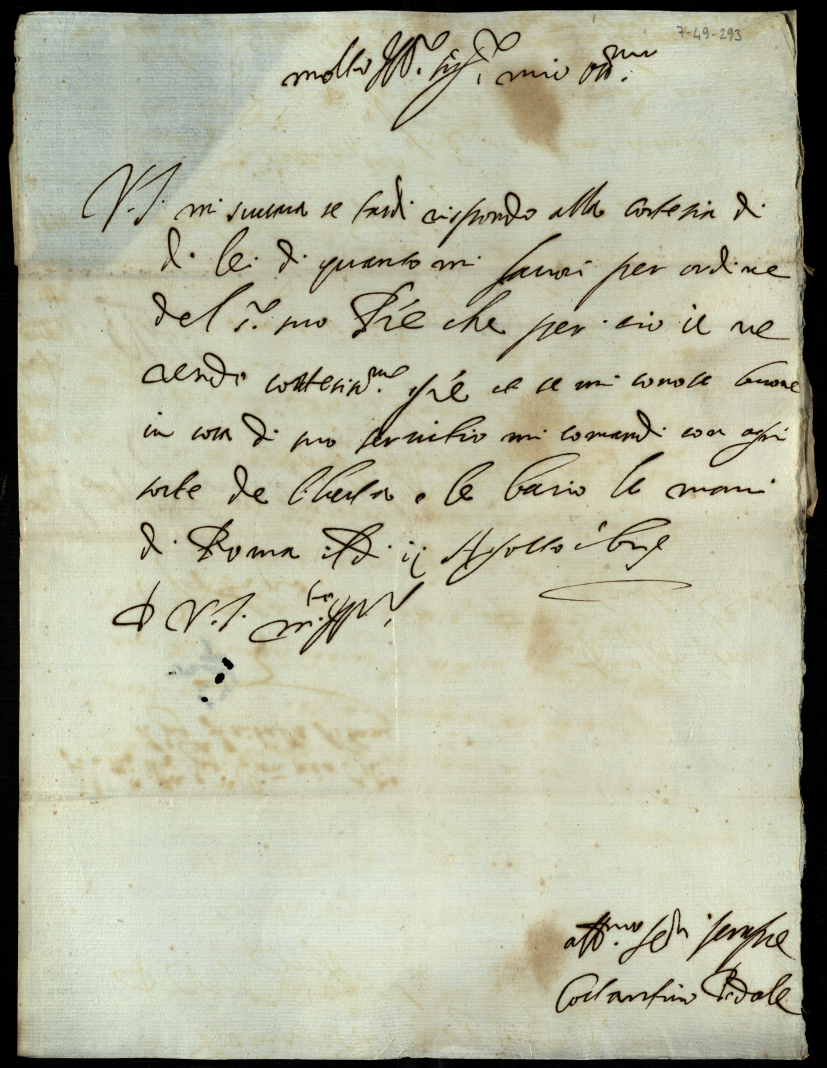 7-49-293
molto Ill.re sig.r mio oss.mo
V.S. mi scusara se tardi rispondo alla cortesia di
di lei di quanto mi favori per ordine
del s.r suo Pre che per cio le ne
rendo cortesis.me gre et se mi conosce buono
in cosa di suo servitio mi comandi con ogni
sorte de liberta e le bacio le mani
di Roma Agosto
D V.S. m.to Ill.re
aff.mo se.r sempre
Costantino